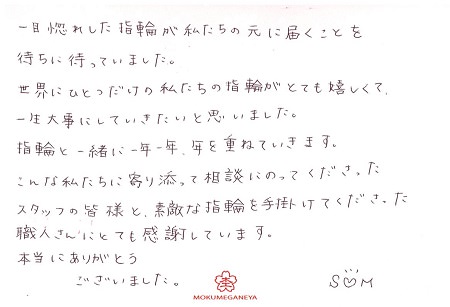 一目惚れした指輪が私たちの元に届くことを
待ちに待っていました。
世界にひとつだけの私たちの指輪がとても嬉しくて、
一生大事にしていきたいと思いました。
指輪と一緒に一年一年、年を重ねていきます。
こんな私たちに寄り添って相談にのってくださった
スタッフの皆様と、素敵な指輪を手掛けてくださった
職人さんにとても感謝しています。
本当にありがとう
ございました。
S♡M
MOKUMEGANEYA